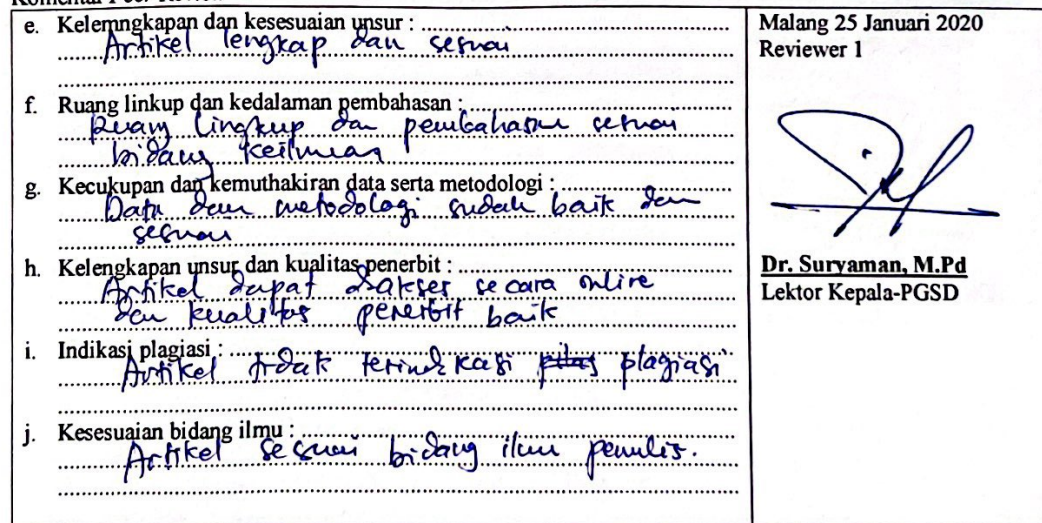 e. Kelemngkapan dan kesesuaian unsur :
Artikel lengkap dan sesuai
f. Ruang linkup dan kedalaman pembahasan :
Ruang lingkup dan pembahasan sesuai
bidang keilmuan
g. Kecukupan dan kemuthakiran data serta metodologi :
Data dan metodologi sudah baik dan
sesuai
h. Kelengkapan unsur dan kualitas penerbit :
Artikel dapat diakses secara online
dan kualitas penerbit baik
i. Indikasi plagiasi :
Artikel tidak terindikasi plagiasi
j. Kesesuaian bidang ilmu :
Artikel sesuai bidang ilmu penulis.
Malang 25 Januari 2020
Reviewer 1
Dr. Suryaman, M.Pd
Lektor Kepala-PGSD